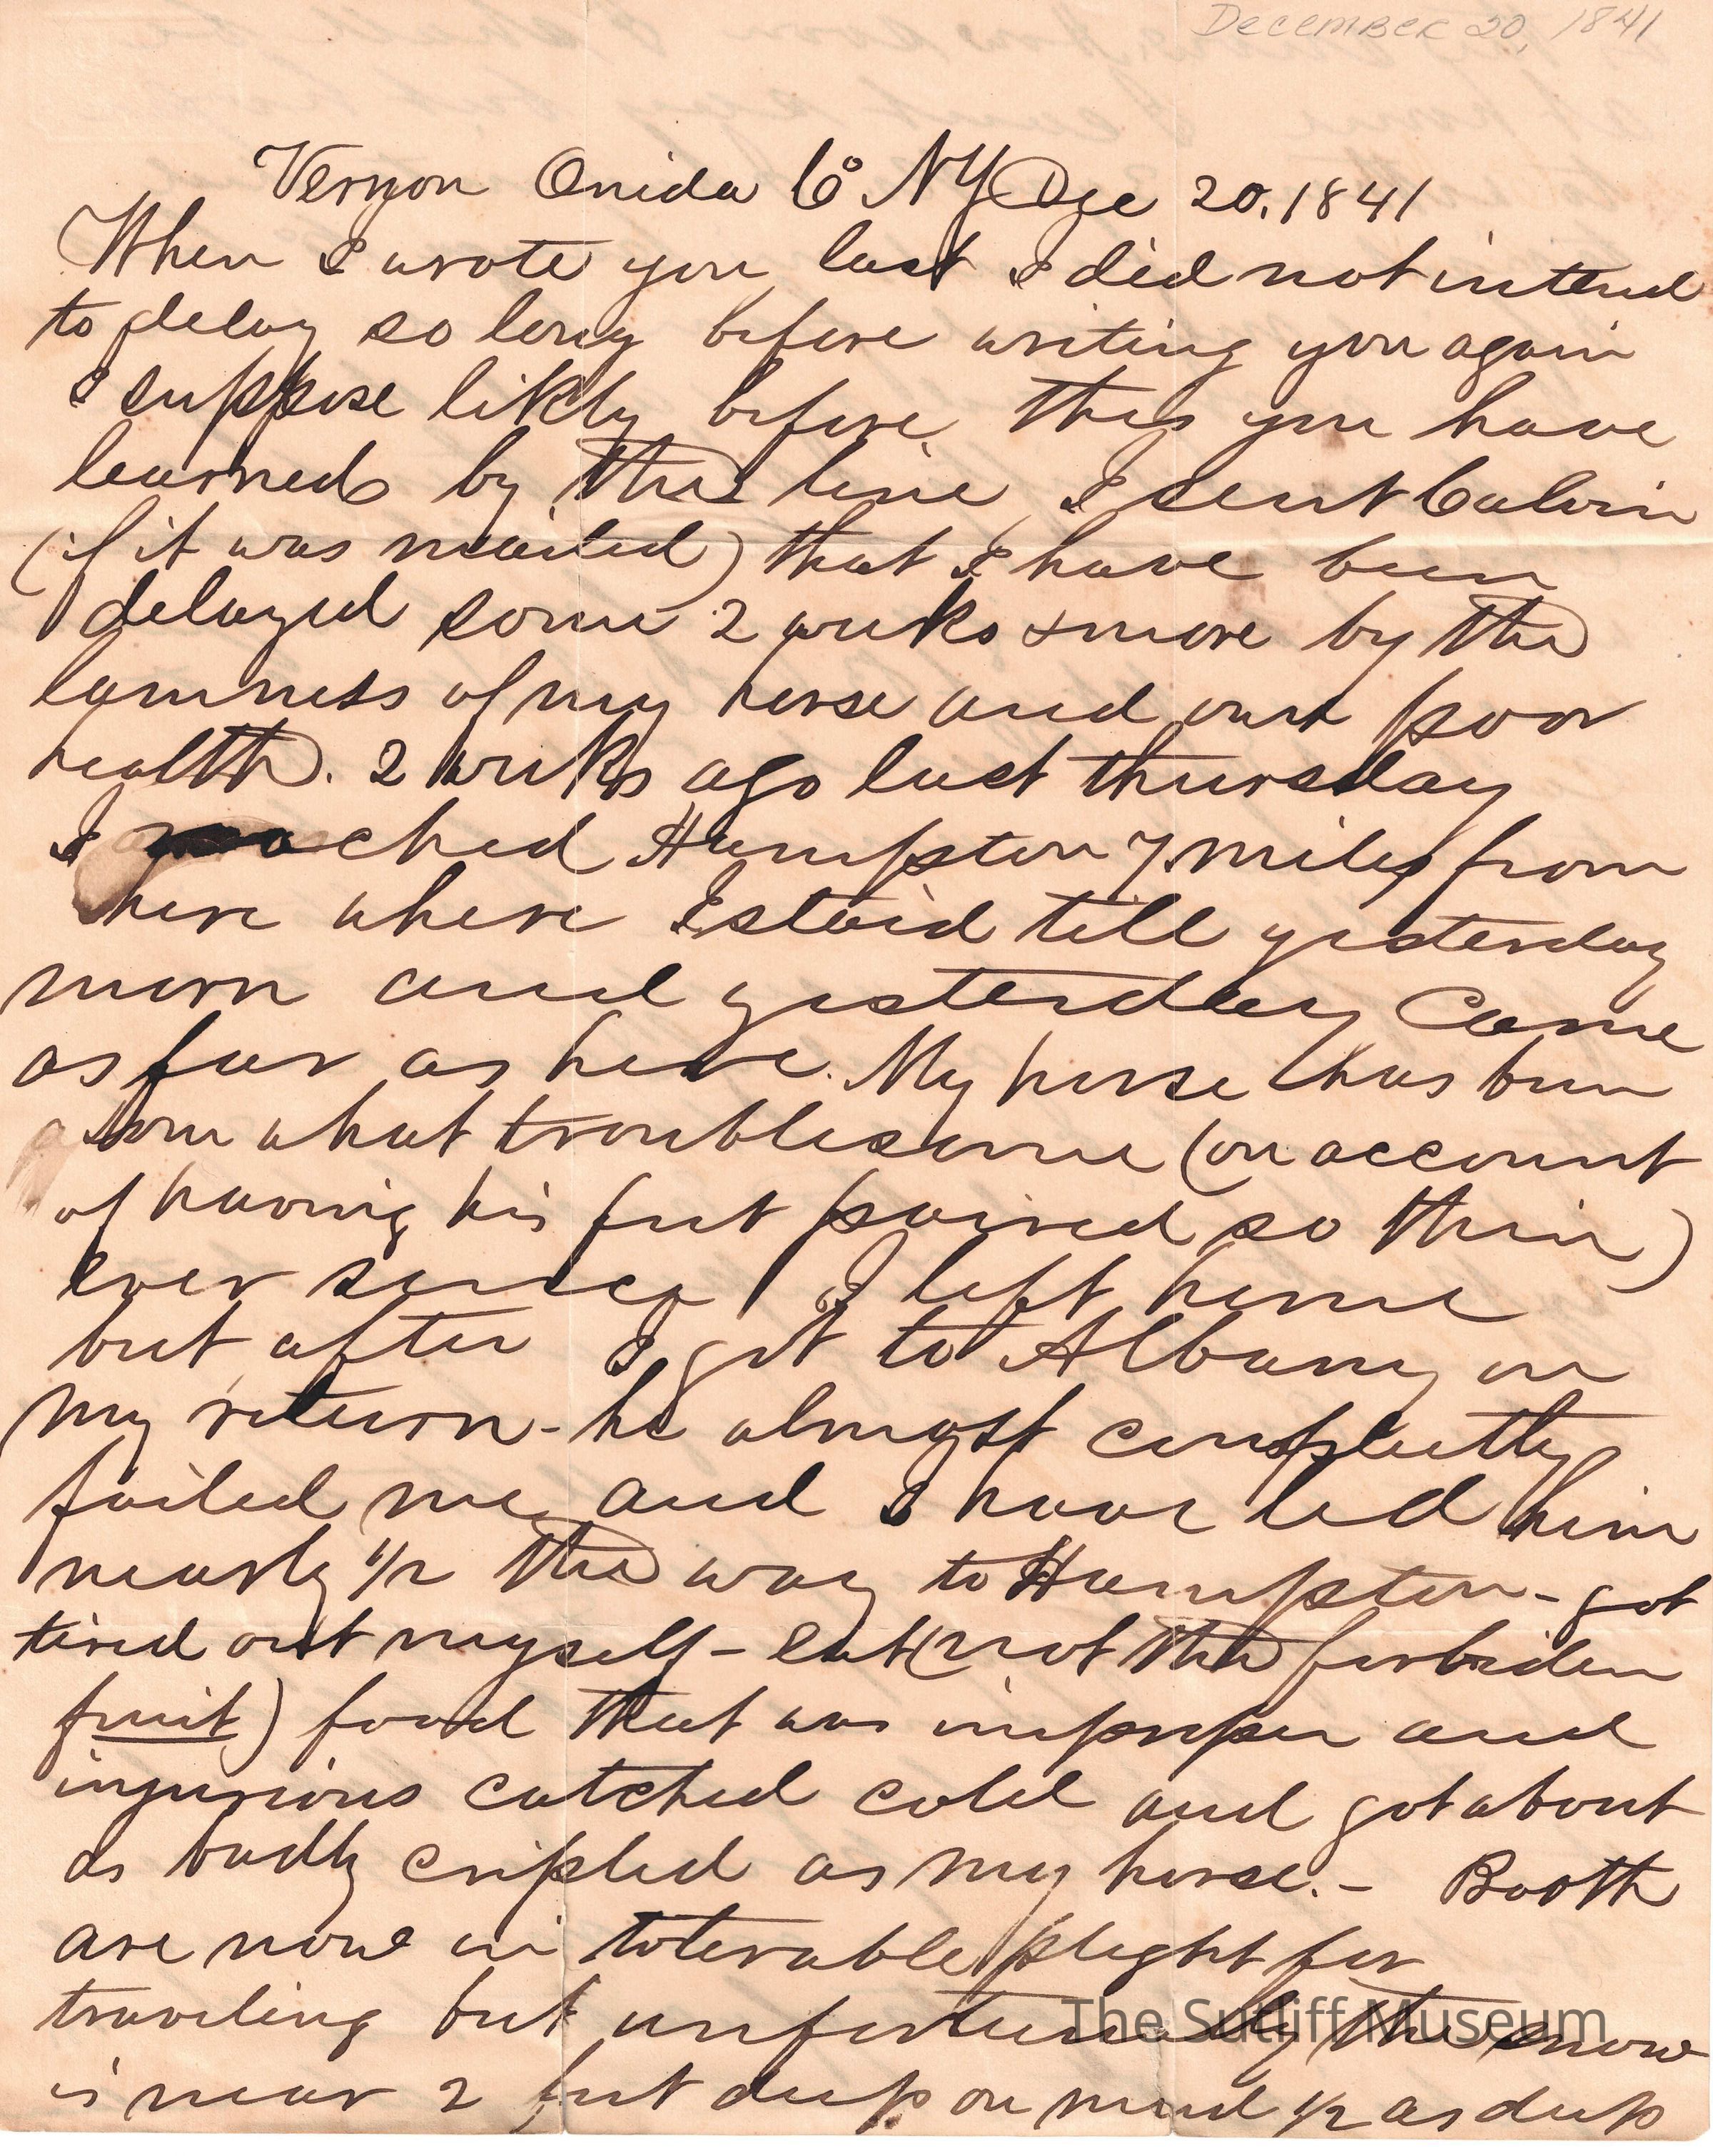 December 20, 1841
Vernon Onida Co NY Dec 20. 1841
When I wrote you last I did not intend
to delay so long before writing you again
I suppose likly before this you have
learned by the line I sent Calvin
(if it was mailed) that I have been
delayed some 2 weeks & more by the
lamness of my horse and our poor
health. 2 weeks ago last thursday
I reached Hampton 7 miles from
here where I staid till yesterday
morn and yesterday Came
as far as here. My horse has been
some what troublesome (on account
of having his feet paired so thin)
ever since I left home
but after I got to Albany on
my return - he almost completly
failed me and I have led him
nearly 1/2 the way to Hampton - got
tired out myself - eat (not the forbiden
fruit) food that was improper and
injurious catched cold and got about
as badly cripled as my horse. - Booth
are now in tolerable plight for
traveling but unfortunatly the snow
is near 2 feet deep on mud 1/2 as deep
The Sutliff Museum